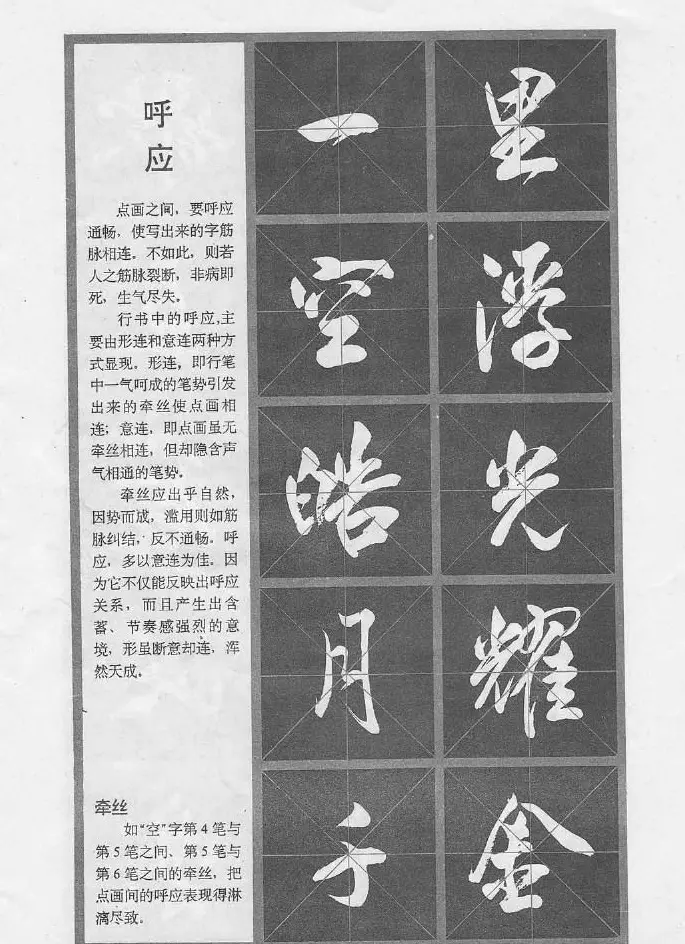 呼
应
点画之间，要呼应
通畅，使写出来的字筋
脉相连。不如此，则若
人之筋脉裂断，非病即
死，生气尽失。
行书中的呼应，主
要由形连和意连两种方
式显现。形连，即行笔
中一气呵成的笔势引发
出来的牵丝使点画相
连；意连，即点画虽无
牵丝相连，但却隐含声
气相通的笔势。
牵丝应出乎自然，
因势而成，滥用则如筋
脉纠结，反不通畅。呼
应，多以意连为佳。因
为它不仅能反映出呼应
关系，而且产生出含
蓄、节奏感强烈的意
境，形虽断意却连，浑
然天成。
牵丝
如“空”字第4笔与
第5笔之间、第5笔与
第6笔之间的牵丝，把
点画间的呼应表现得淋
漓尽致。
一空皓月千
里浮光耀金